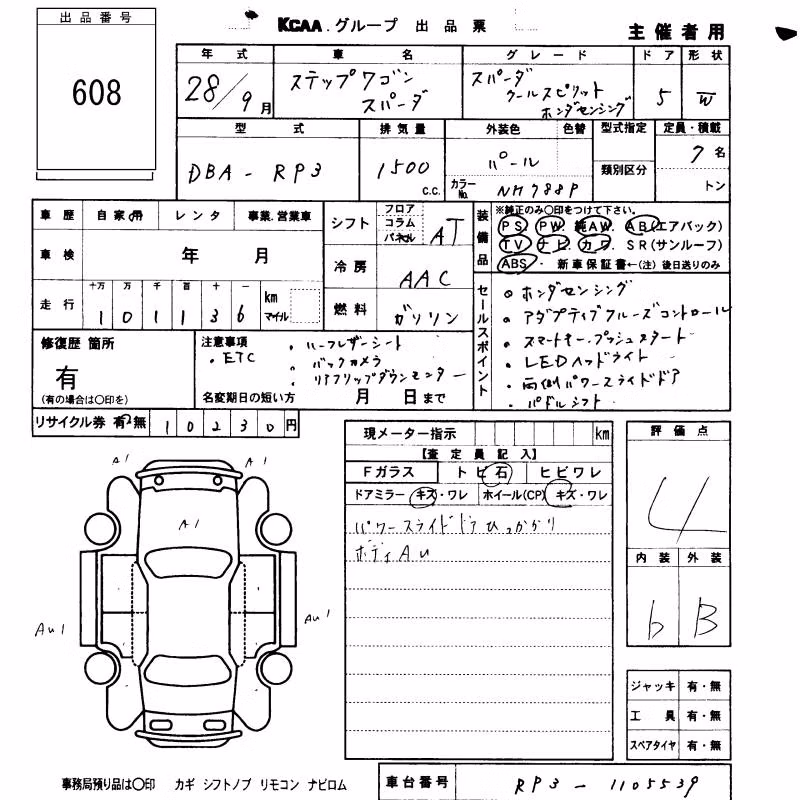 出品番号
608
KCAA.グループ 出品票
主催者用
年式 車名 グレード ドア 形状
28/9月 ステップワゴン スパーダ スパーダ クールスピリット ホンダセンシング 5 W
型式 排気量 外装色 色替 型式指定 定員・積載
DBA-RP3 1500 c.c. パール カラーNo. NH788P 類別区分 7名 トン
車歴 自家用 レンタ 事業.営業車
車検 年 月
走行 十万 万 千 百 十 一 km マイル
101136
シフト フロア コラム パネル AT
冷房 AAC
燃料 ガソリン
装備品 ※純正のみ○印をつけて下さい。
PS. PW. 純AW. AB(エアバック)
TV ナビ. カワ. SR(サンルーフ)
ABS. 新車保証書←(注)後日送りのみ
セールスポイント
・ホンダセンシング
・アダプティブクルーズコントロール
・スマートキー.プッシュスタート
・LEDヘッドライト
・両側パワースライドドア
・パドルシフト
修復歴 箇所
有
(有の場合は○印を)
注意事項
・ETC
・ハーフレザーシート
・バックカメラ
・リアフリップダウンモニター
名変期日の短い方 月 日まで
リサイクル券 有 無 10230円
現メーター指示 km
【査定員記入】
Fガラス トビ石 ヒビワレ
ドアミラー キズ・ワレ ホイール(CP) キズ・ワレ
パワースライドドアひっかかり
ボディAU
評価点
4
内装 外装
b B
A1 A1
A1
AU1 AU1
ジャッキ 有・無
工具 有・無
スペアタイヤ 有・無
事務局預り品は○印 カギ シフトノブ リモコン ナビロム
車台番号 RP3-1105539